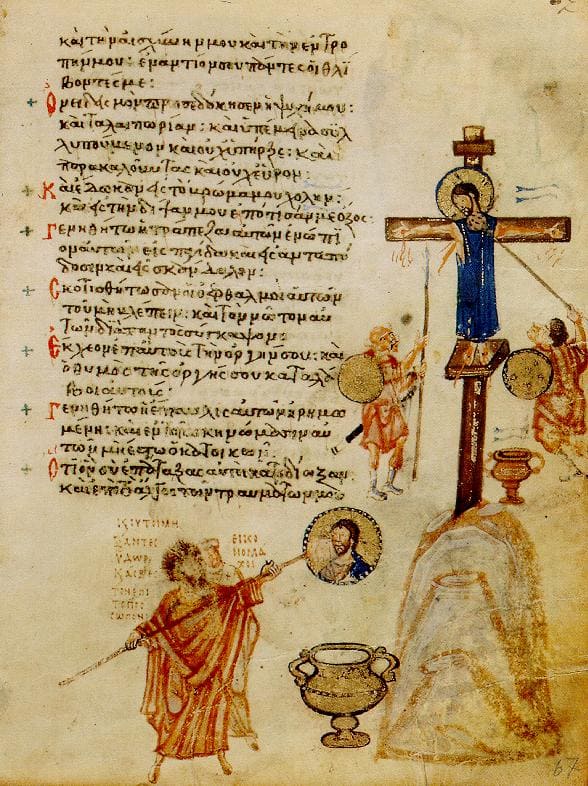 καὶ τὴν αἰσχύνην μου καὶ τὴν ἐντρο
πήν μου: ἐναντίον σου πάντες οἱ θλί
βοντές με:
Ὀνειδισμὸν προσεδόκησεν ἡ ψυχή μου:
καὶ ταλαιπωρίαν: καὶ ὑπέμεινα συλ
λυπούμενον καὶ οὐχ ὑπῆρξε: καὶ
παρακαλοῦντας καὶ οὐχ εὗρον:
Καὶ ἔδωκαν εἰς τὸ βρῶμά μου χολήν:
καὶ εἰς τὴν δίψαν μου ἐπότισάν με ὄξος:
Γενηθήτω ἡ τράπεζα αὐτῶν ἐνώπι
ον αὐτῶν εἰς παγίδα καὶ εἰς ἀνταπό
δοσιν καὶ εἰς σκάνδαλον:
Σκοτισθήτωσαν οἱ ὀφθαλμοὶ αὐτῶν
τοῦ μὴ βλέπειν: καὶ τὸν νῶτον αὐ
τῶν διὰ παντὸς σύγκαμψον:
Ἔκχεον ἐπ' αὐτοὺς τὴν ὀργήν σου: καὶ
ὁ θυμὸς τῆς ὀργῆς σου καταλά
βοι αὐτούς:
Γενηθήτω ἡ ἔπαυλις αὐτῶν ἠρημω
μένη: καὶ ἐν τοῖς σκηνώμασιν αὐ
τῶν μὴ ἔστω ὁ κατοικῶν:
Ὅτι ὃν σὺ ἐπάταξας αὐτοὶ κατεδίωξαν:
καὶ ἐπὶ τὸ ἄλγος τῶν τραυμάτων μου
ΕΙΚΟ
ΝΟΜΑ
ΧΟΙ
ΞΑΝΤΕΣ
ΥΔΩΡ
67